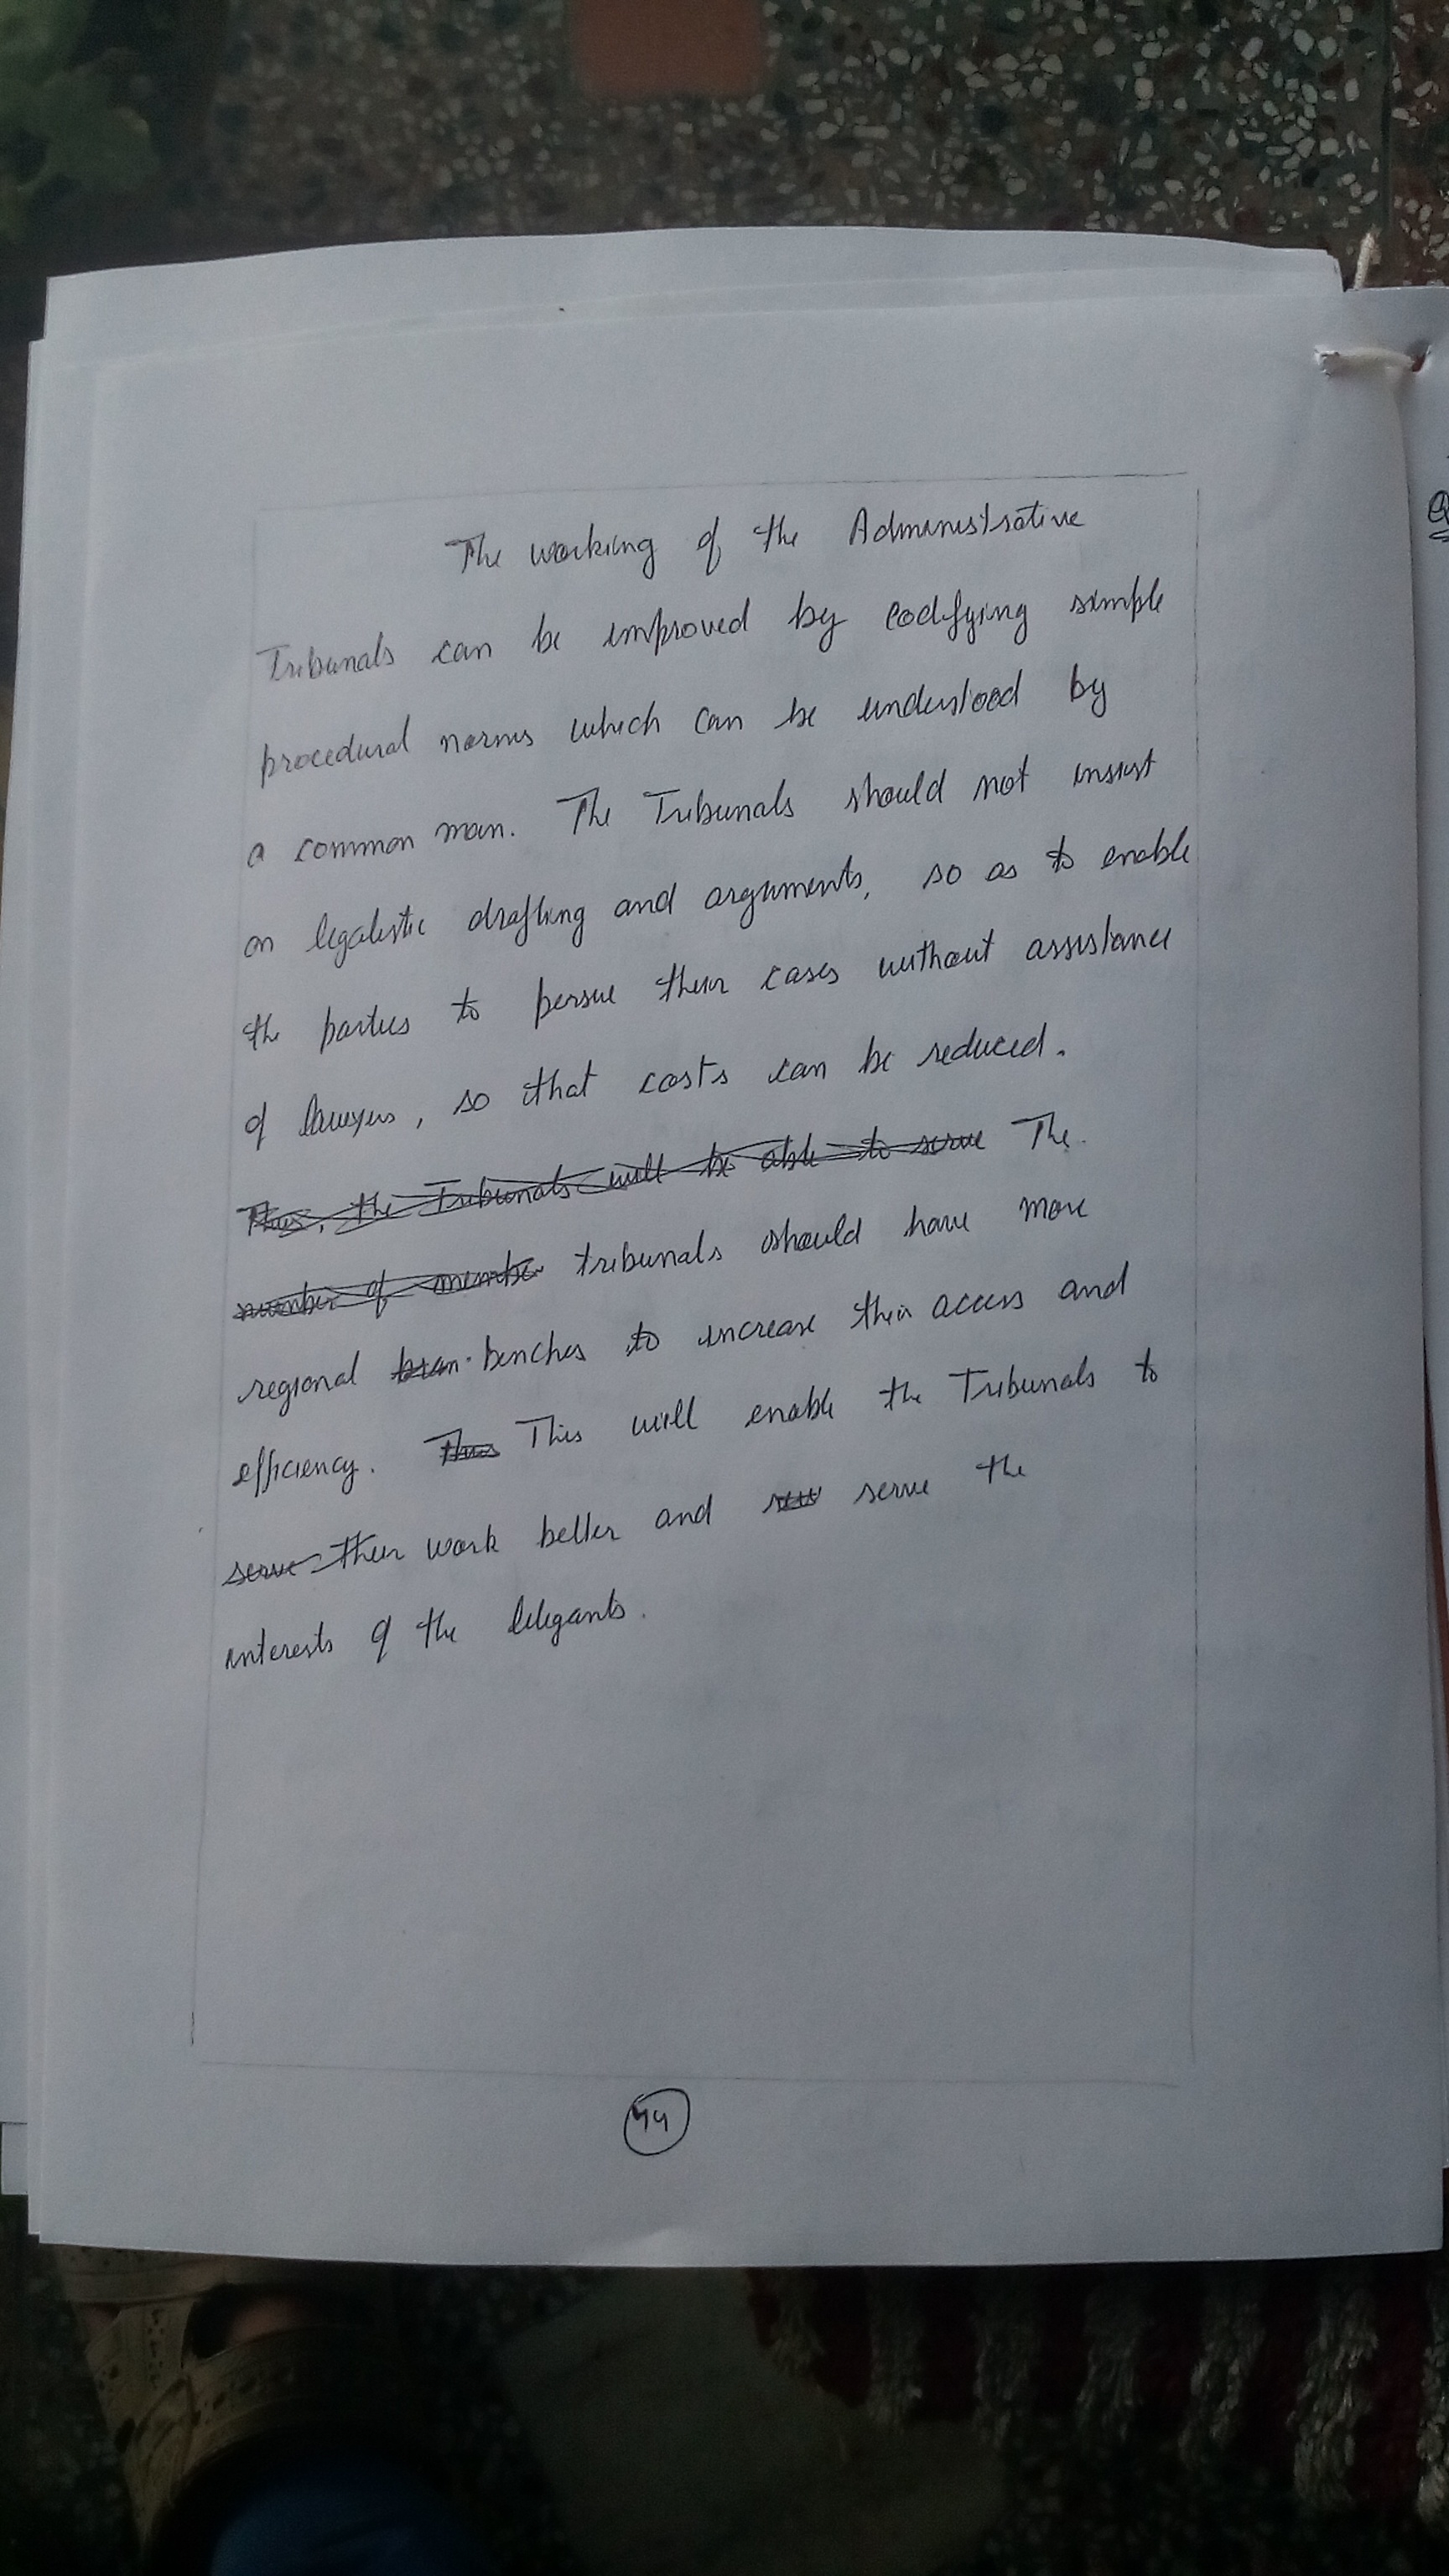 The working of the Administrative
Tribunals can be improved by codifying simple
procedural norms which can be understood by
a common man. The Tribunals should not insist
on legalistic drafting and arguments, so as to enable
the parties to persue their cases without assistance
of lawyers, so that costs can be reduced.
Thus, the Tribunals will be able to serve The
number of membe tribunals should have more
regional bran benches to increase their access and
efficiency. Thus This will enable the Tribunals to
serve their work better and serve the
interests of the litigants.
44